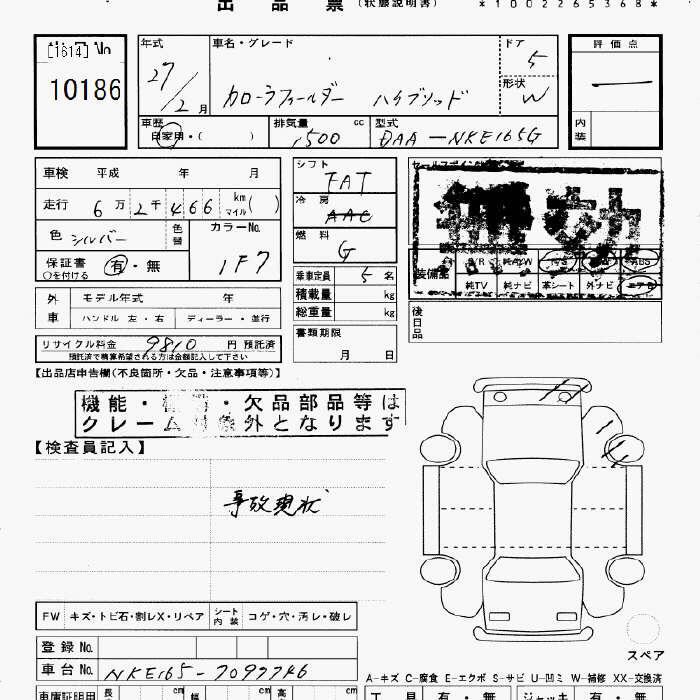 出品票 (状態説明書) *1002265368*
[1614] No
10186
年式 27/2月
車名・グレード カローラフィールダー ハイブリッド
ドア 5
形状 W
評価点 —
内装
車歴 自家用・( )
排気量 1500 cc
型式 DAA-NKE165G
車検 平成 年 月
走行 6万2千466 km マイル( )
色 シルバー 色替
カラーNo. 1F7
保証書 ○を付ける 有・無
シフト FAT
冷房 AAC
燃料 G
乗車定員 5名
積載量 kg
総重量 kg
書類期限
月 日
セールスポイント
装備品 S/R 純A/W P/S P/W ABS
純TV 純ナビ 革シート 外ナビ エアB
後日品
外車 モデル年式 年
ハンドル 左・右 ディーラー・並行
リサイクル料金 9810 円 預託済
預託済で精算希望される方は金額記入して下さい
【出品店申告欄(不良箇所・欠品・注意事項等)】
機能・ ・欠品部品等は
クレーム対象外となります
【検査員記入】
事故現状
FW キズ・トビ石・割レX・リペア シート内装 コゲ・穴・汚レ・破レ
スペア
登録No.
車台No. NKE165-7097746
A-キズ C-腐食 E-エクボ S-サビ U-凹ミ W-補修 XX-交換済
車庫証明用 長 cm 幅 cm 高 cm
工具 有・無 ジャッキ 有・無